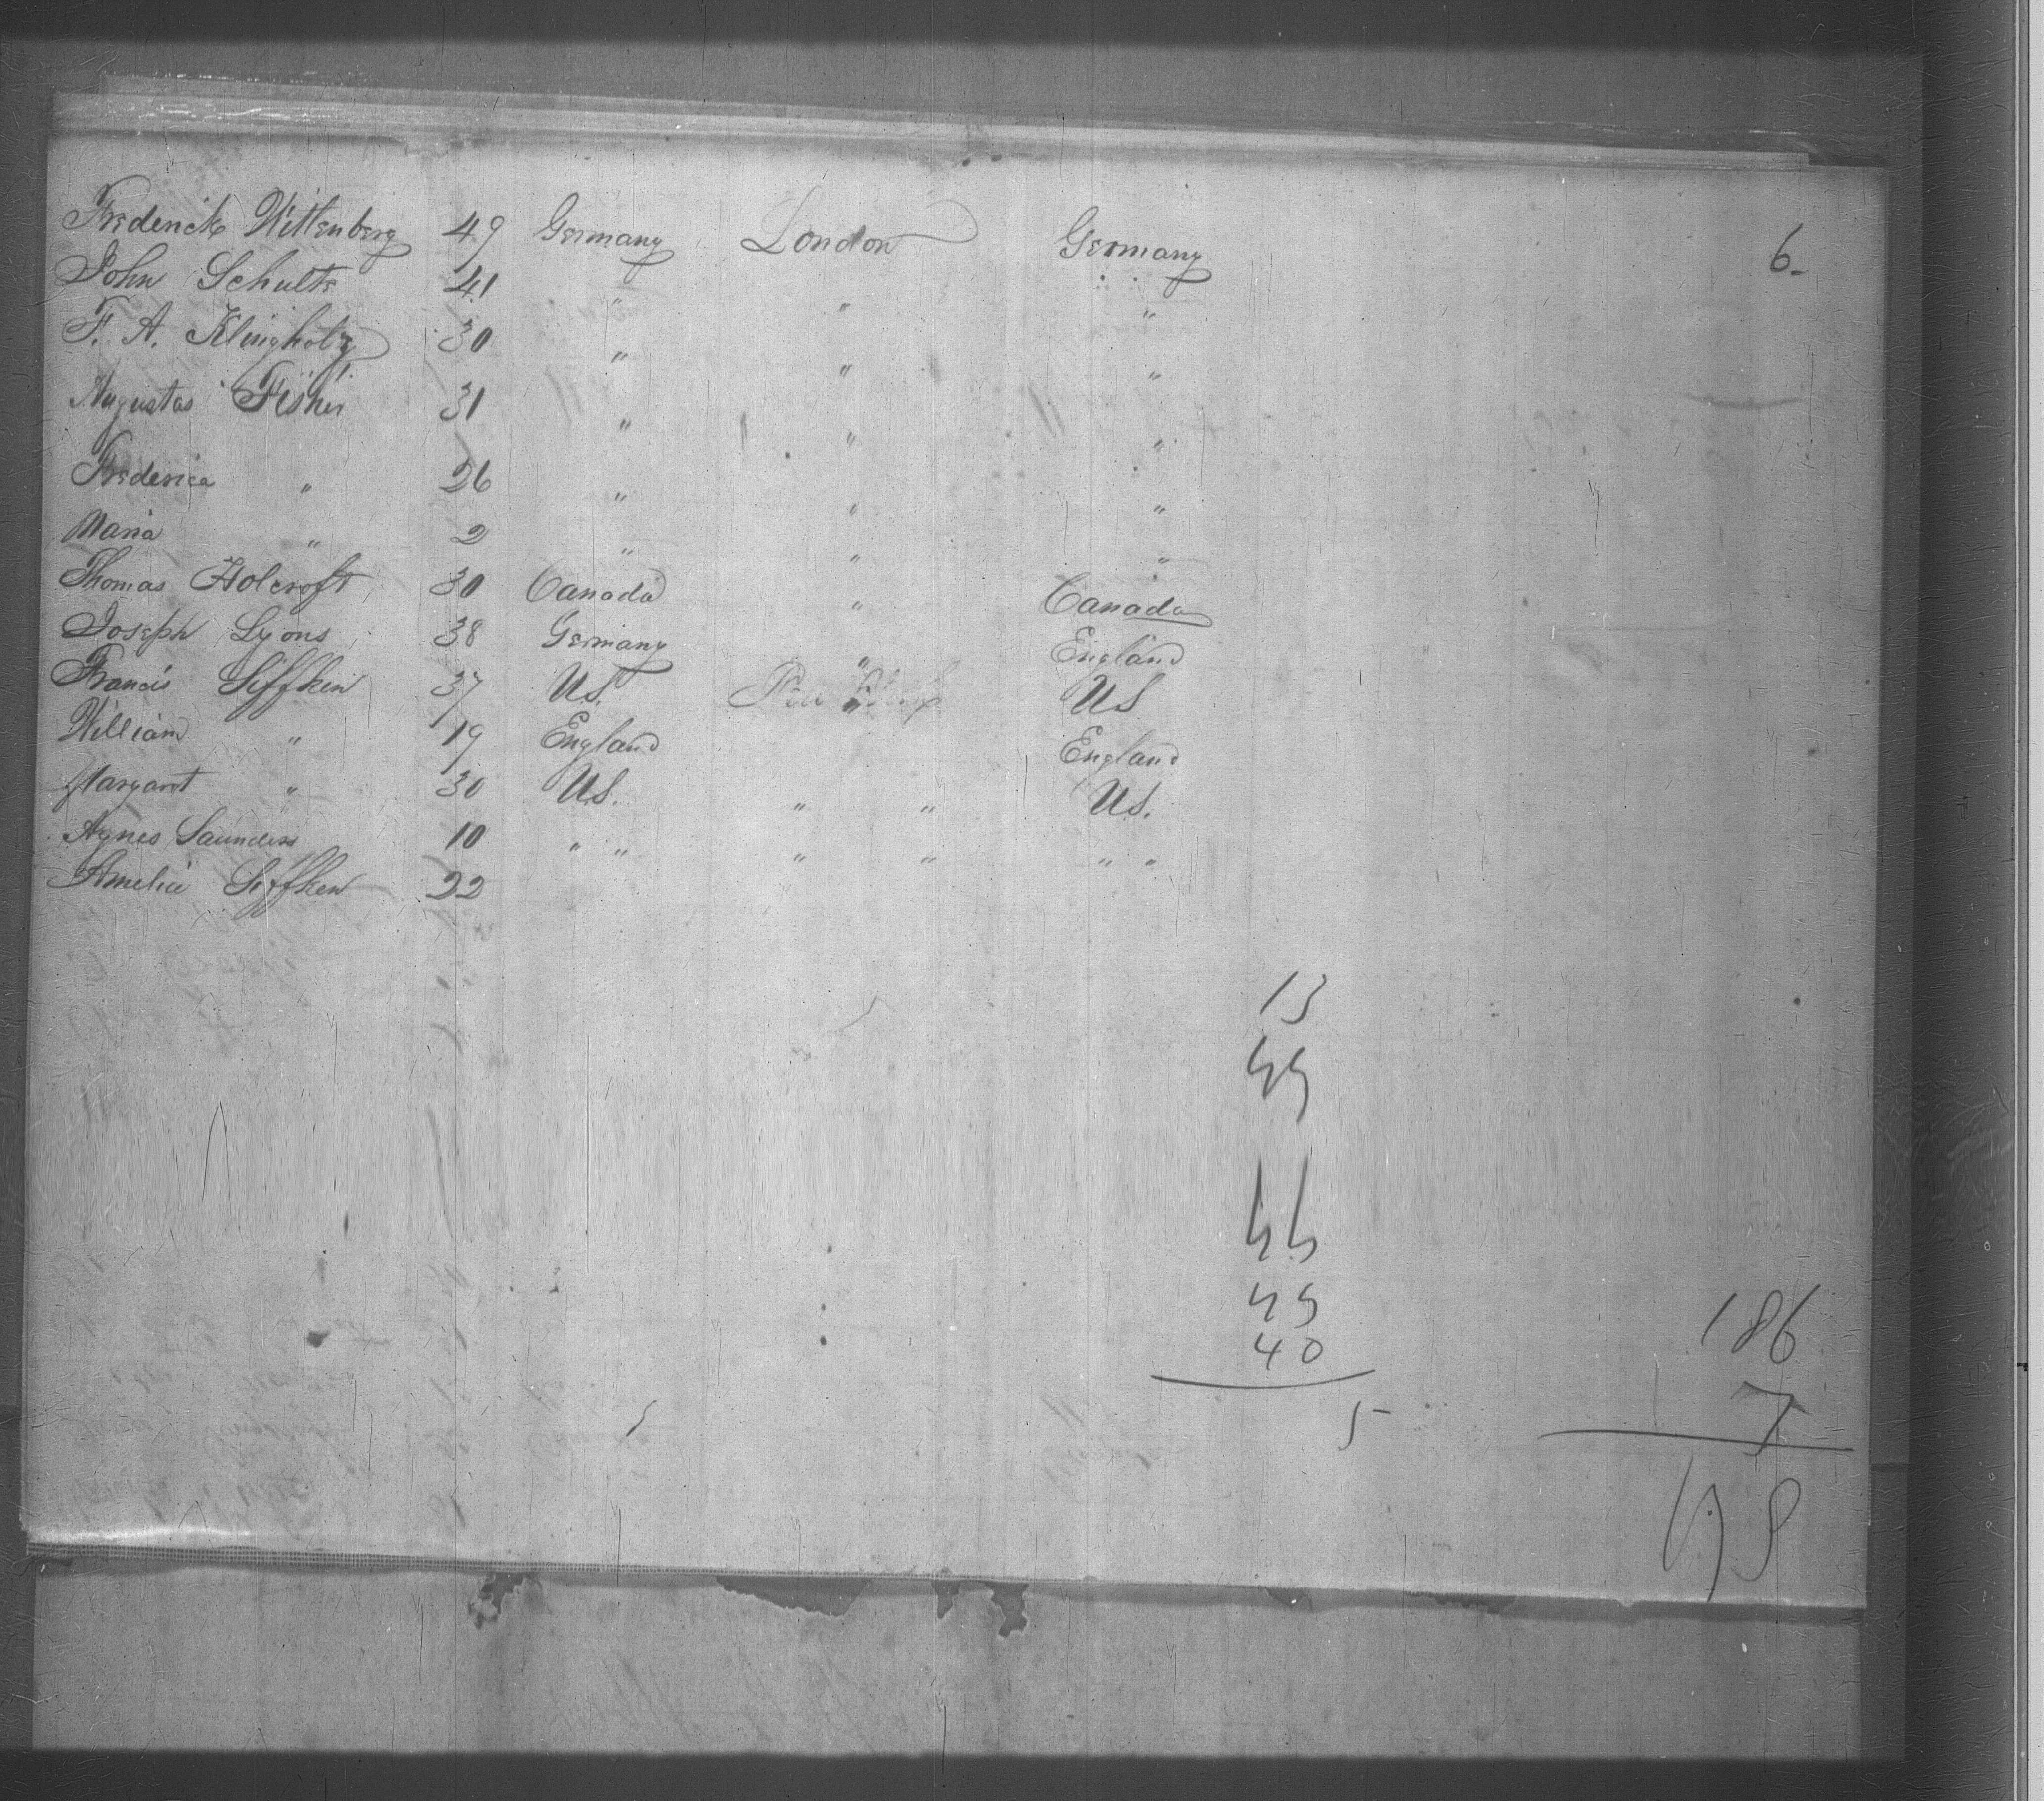 Frederick Wittenberg 49 Germany London Germany 6-
John Schults 41 " " "
F. A. Klingholz 30 " " "
Augustas Fisher 31 " " "
Frederica " 26 " " "
Maria " 2 " " "
Thomas Holcroft 30 Canada " Canada
Joseph Lyons 38 Germany " England
Francis Siffken 37 US. US
William " 19 England England
Margaret " 30 US. " " US.
Agnes Saunders 10 " " " " " "
Amelia Siffken 22
13
45
45
40
5
186
7